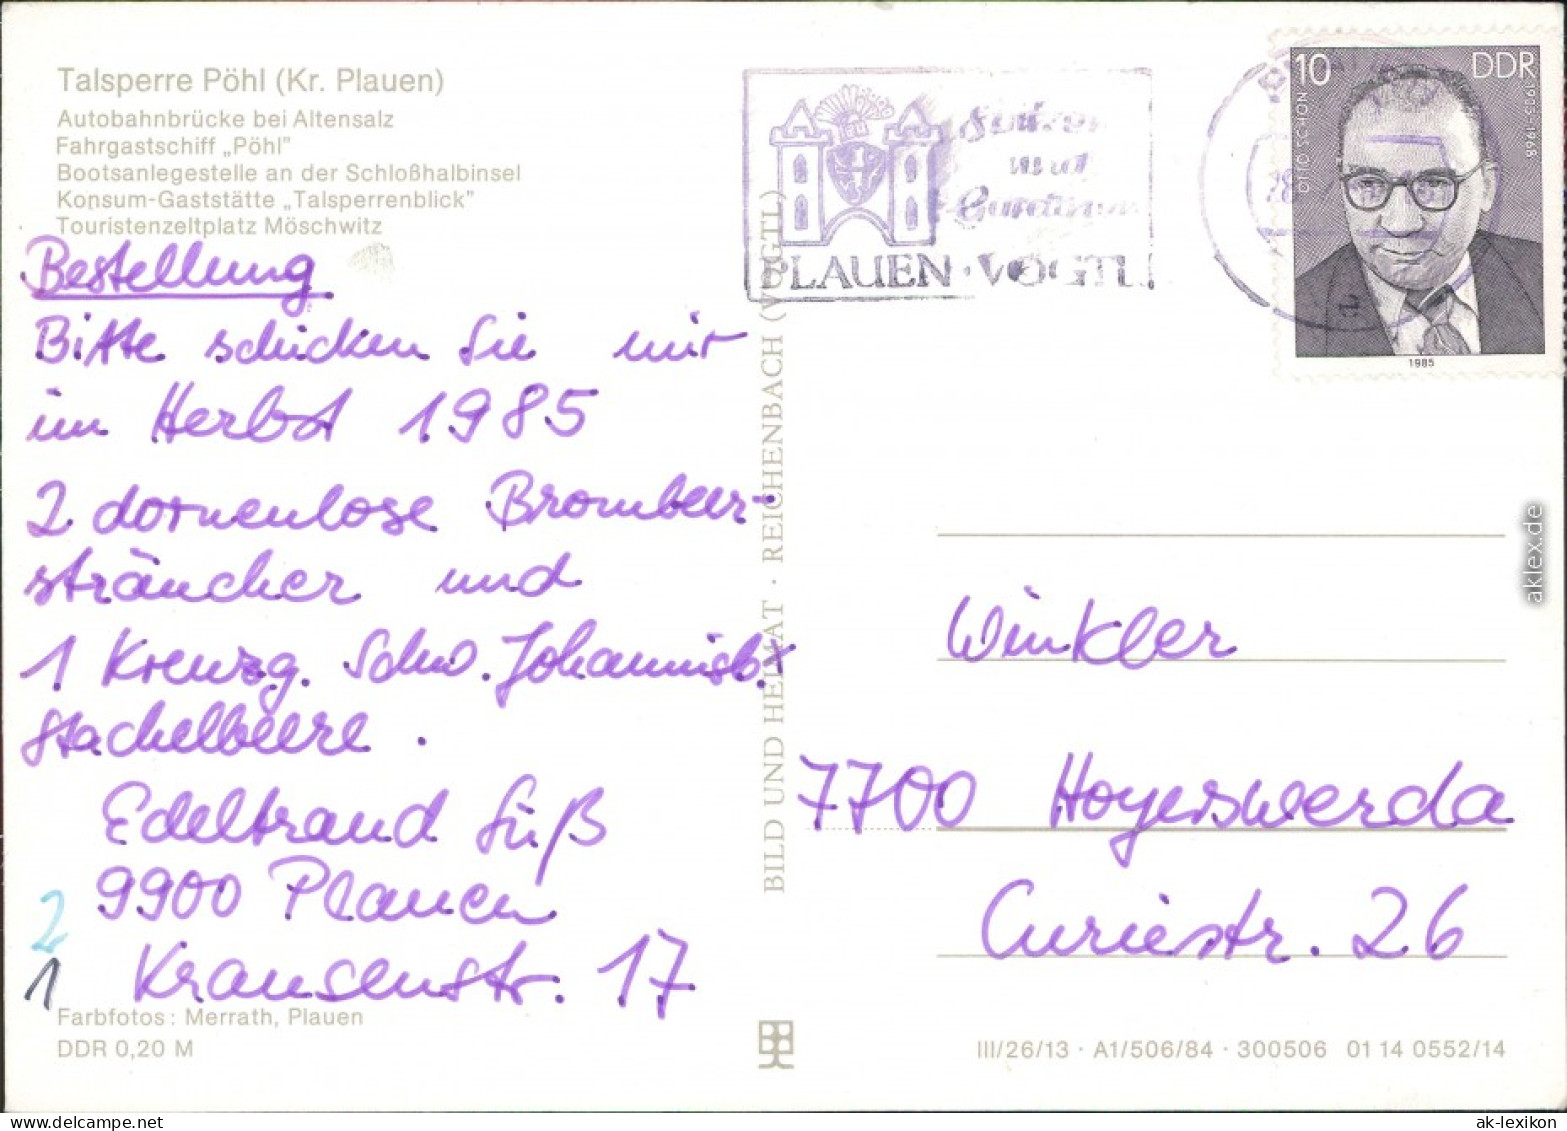 Talsperre Pöhl (Kr. Plauen)
Autobahnbrücke bei Altensalz
Fahrgastschiff „Pöhl"
Bootsanlegestelle an der Schloßhalbinsel
Konsum-Gaststätte „Talsperrenblick"
Touristenzeltplatz Möschwitz
Bestellung
Bitte schicken Sie mir
im Herbst 1985
2 dornenlose Brombeer-
sträucher und
1 Kreuzg. Schw. Johannisb. x
Stachelbeere.
Edeltraud Süß
9900 Plauen
Krausenstr. 17
2
1
Farbfotos: Merrath, Plauen
DDR 0,20 M
BILD UND HEIMAT · REICHENBACH (VOGTL)
PLAUEN · VOGTL.
10 DDR
OTTO SCHÖN
1905-1968
1985
Winkler
7700 Hoyerswerda
Curiestr. 26
III/26/13 · A1/506/84 · 300506 01 14 0552/14
aklex.de
ak-lexikon